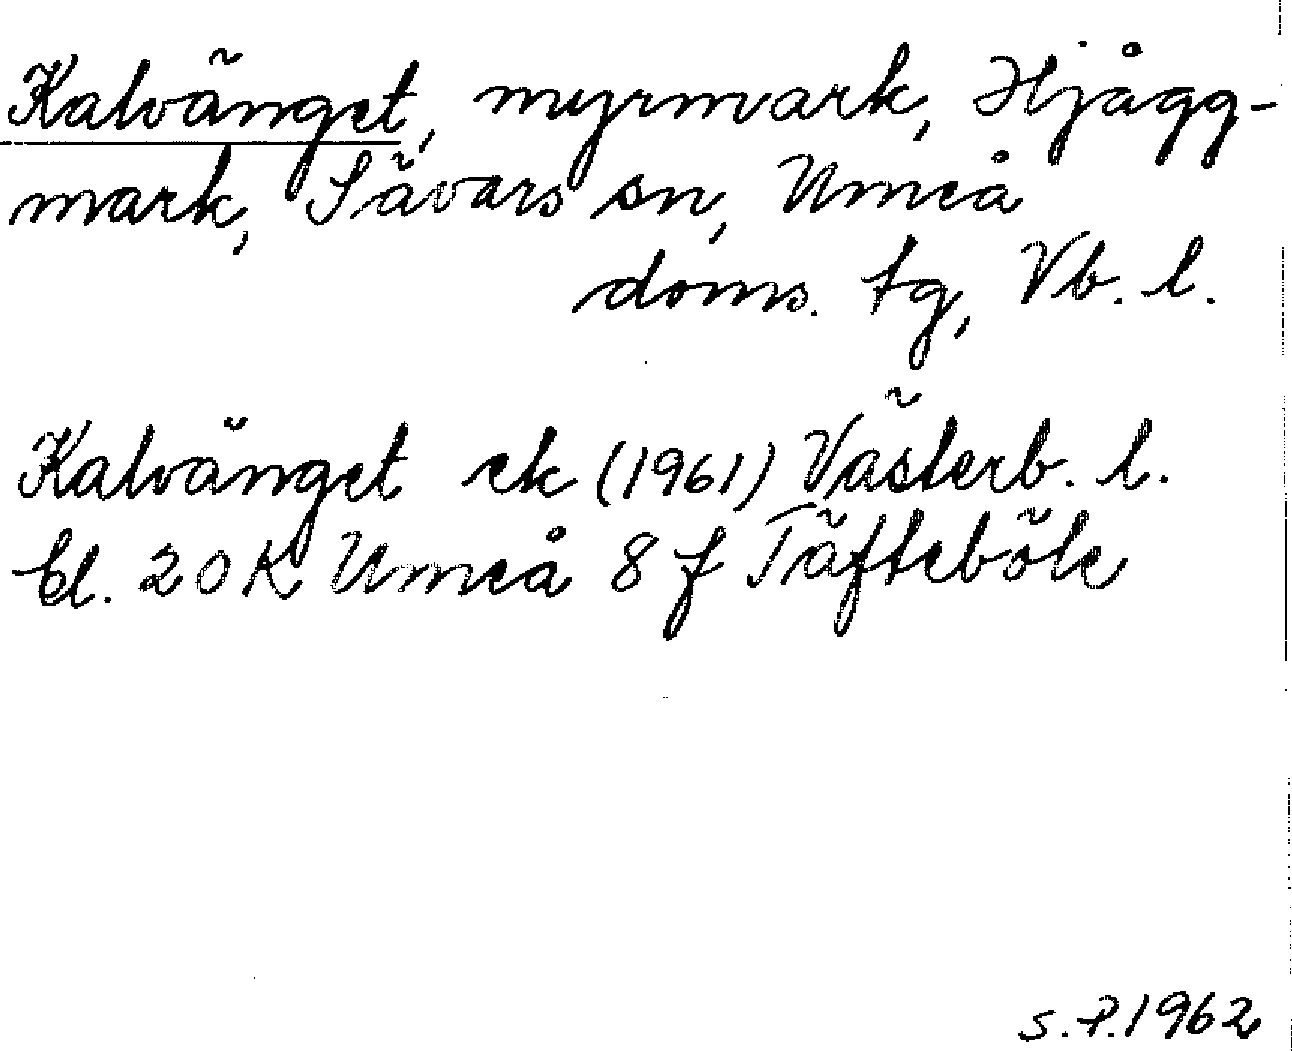 Kalvänget, myrmark, Hjågg-
mark, Sävars sn, Umeå
doms. tg, Vb. l.
Kalvänget ek (1961) Västerb. l.
bl. 20 K Umeå 8 f Täfteböle
S.P. 1962